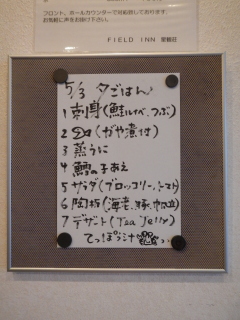 フロント、ホールカウンターで対応致しております。
お気軽に声をお掛け下さい。
FIELD INN
5/3 夕ごはん♪
1 刺身(鮭ルイベ、つぶ)
2 (ガヤ煮付)
3 蒸うに
4 鱈の子あえ
5 サラダ(ブロッコリー、トマト)
6 陶板(海老、豚、帆立)
7 デザート(Tea Jelly)
てっぽう汁